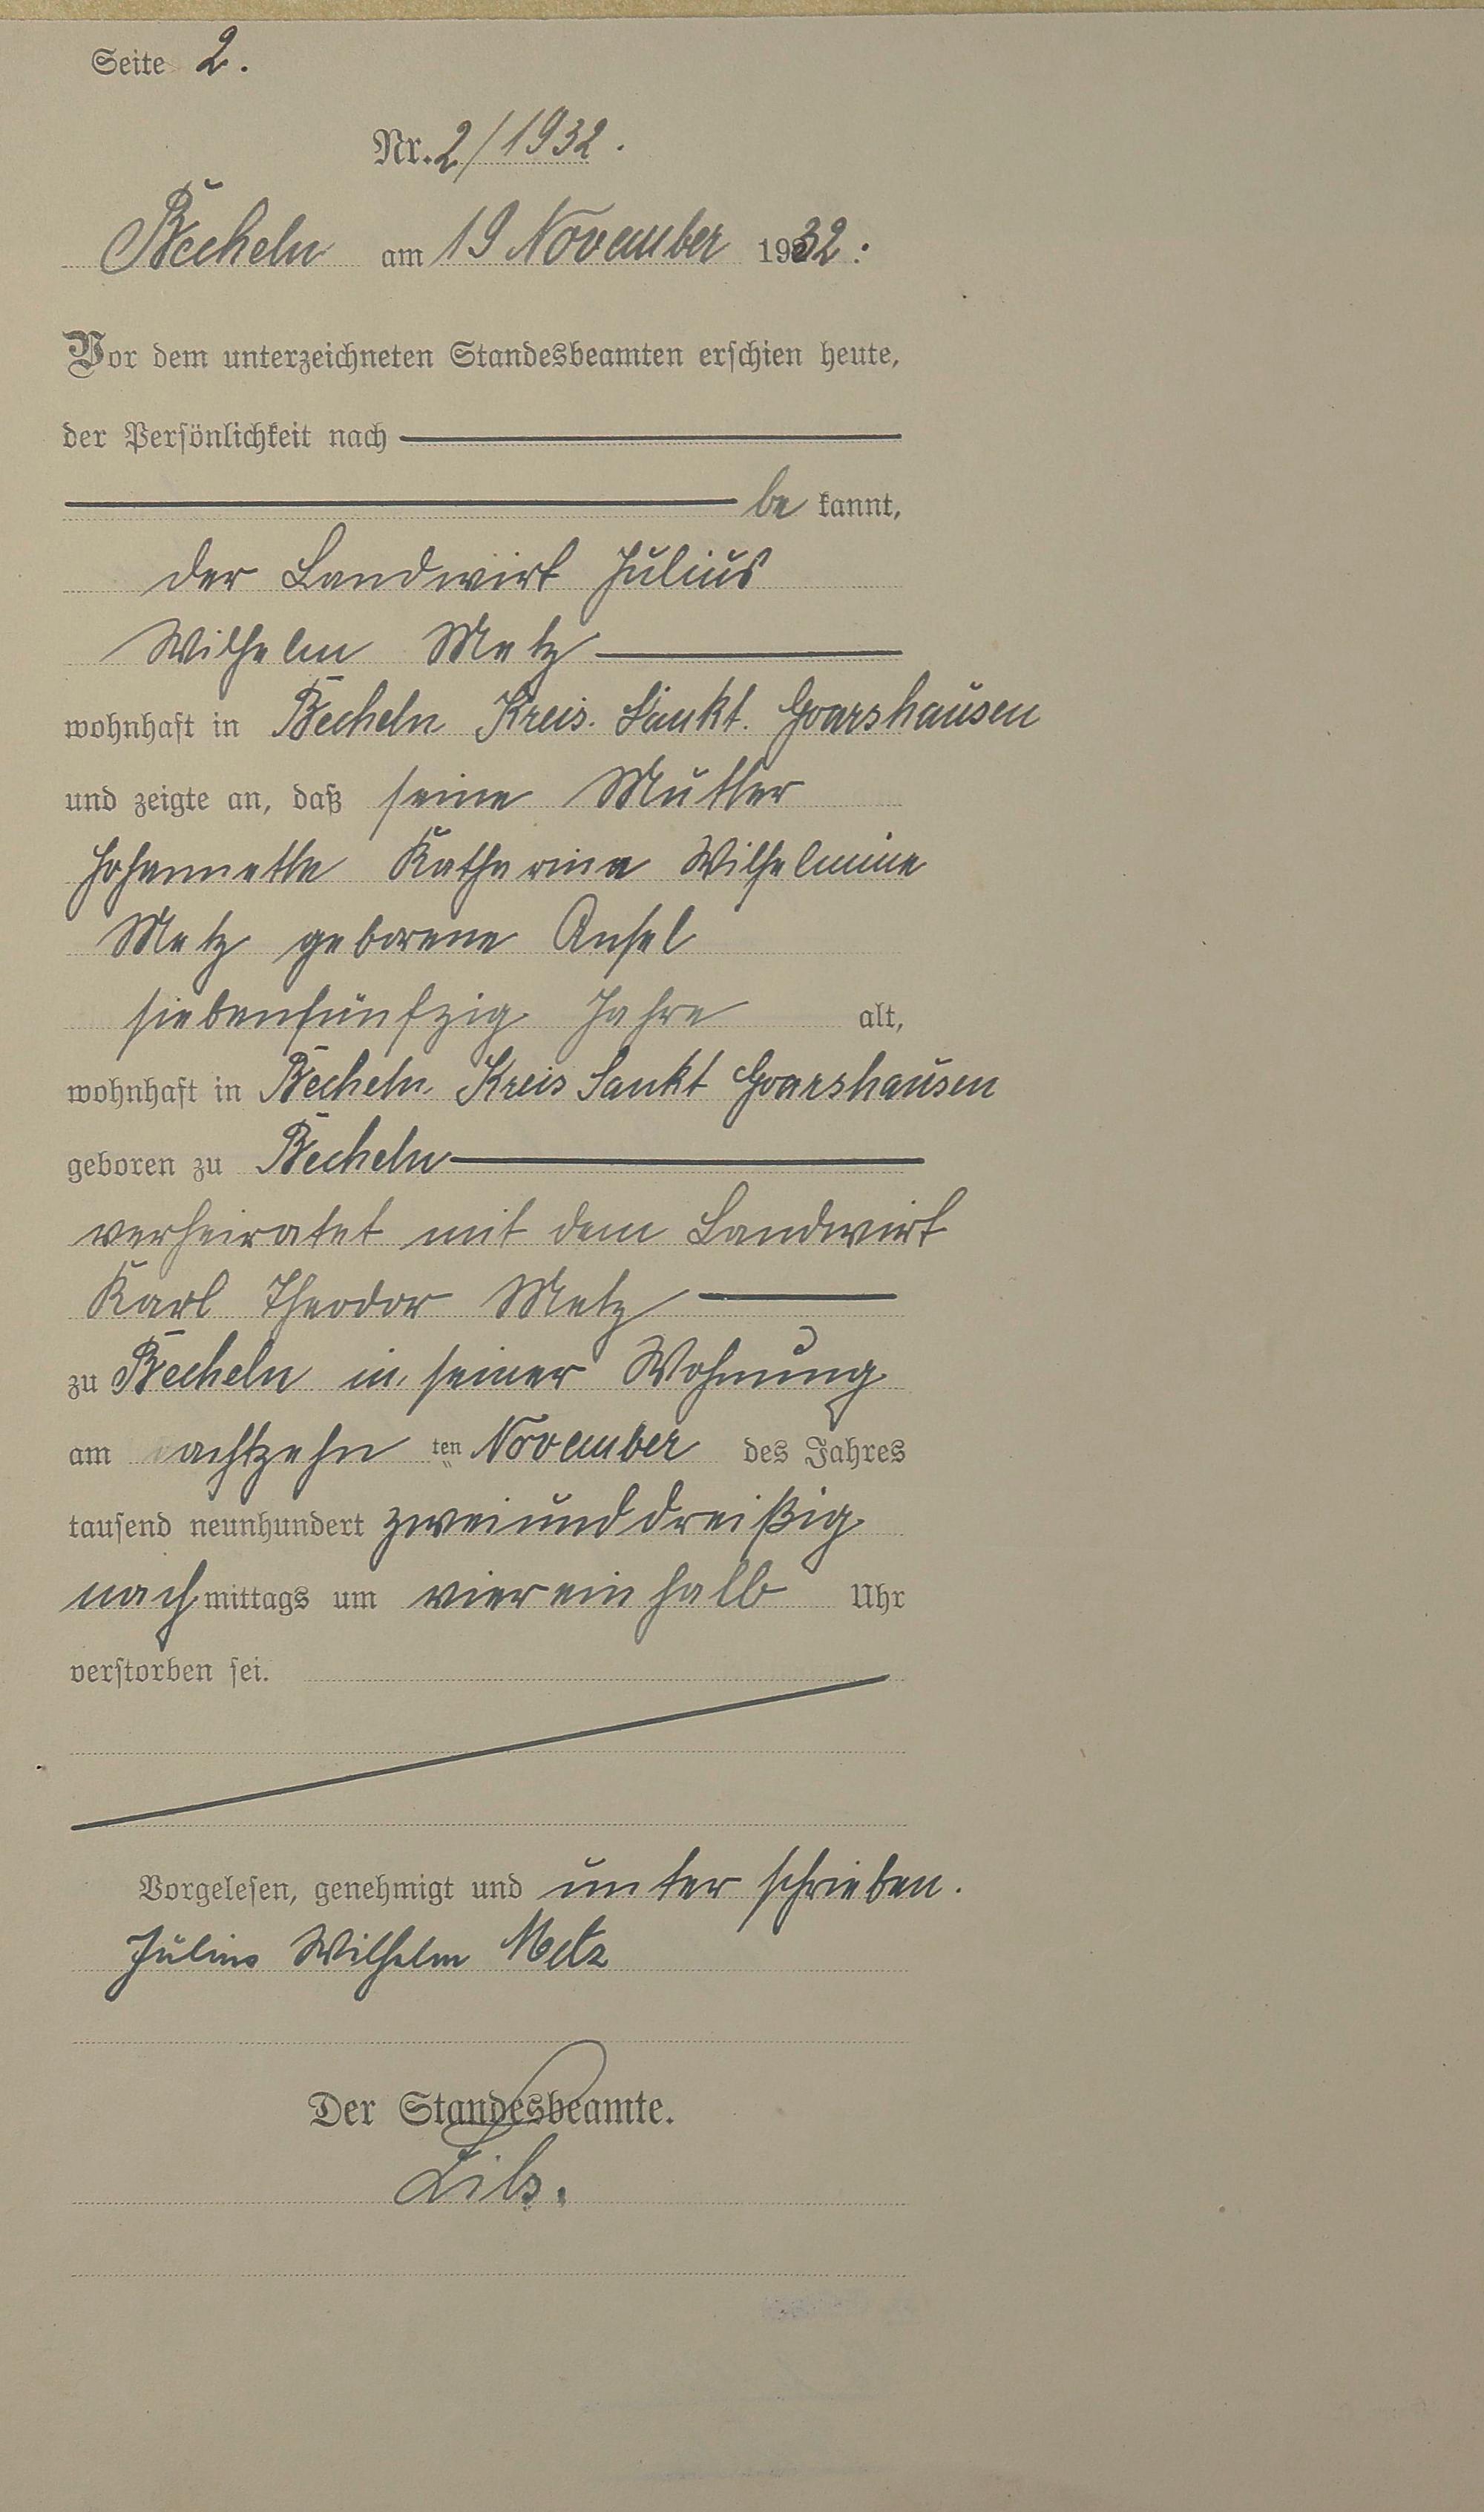 Seite 2.
Nr. 2/1932.
Becheln am 19 November 1932.
Vor dem unterzeichneten Standesbeamten erschien heute,
der Persönlichkeit nach
be kannt,
der Landwirt Julius
Wilhelm Metz
wohnhaft in Becheln Kreis. Sankt. Goarshausen
und zeigte an, daß seine Mutter
Johannette Katharina Wilhelmine
Metz geborene Ansel
siebenfünfzig Jahre alt,
wohnhaft in Becheln Kreis Sankt Goarshausen
geboren zu Becheln
verheiratet mit dem Landwirt
Karl Theodor Metz
zu Becheln in seiner Wohnung
am achtzehn ten November des Jahres
tausend neunhundert zweiunddreißig
nachmittags um viereinhalb Uhr
verstorben sei.
Vorgelesen, genehmigt und unterschrieben.
Julius Wilhelm Metz
Der Standesbeamte.